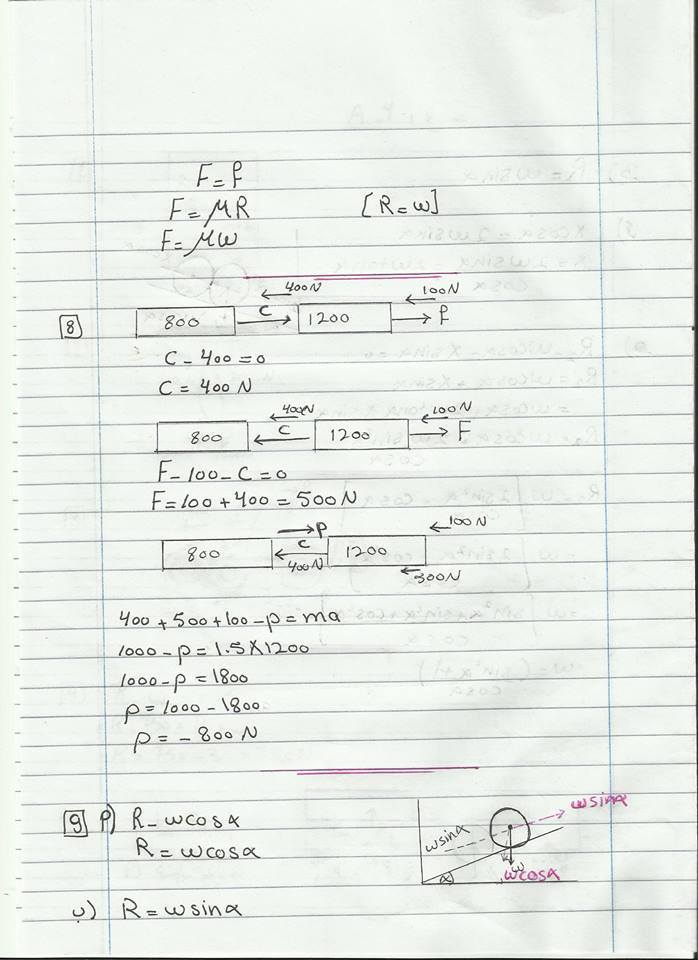 F = f
F = μR [R = w]
F = μw
8
400N 100N
800 C 1200 f
C - 400 = 0
C = 400 N
400N 100N
800 C 1200 F
F - 100 - C = 0
F = 100 + 400 = 500 N
P 100N
800 C 1200
400N 300N
400 + 500 + 100 - P = ma
1000 - P = 1.5 × 1200
1000 - P = 1800
P = 1000 - 1800
P = - 800 N
9 P) R - wcosα
R = wcosα
wsinα
wsinα
w
α wcosα
R = wsinα